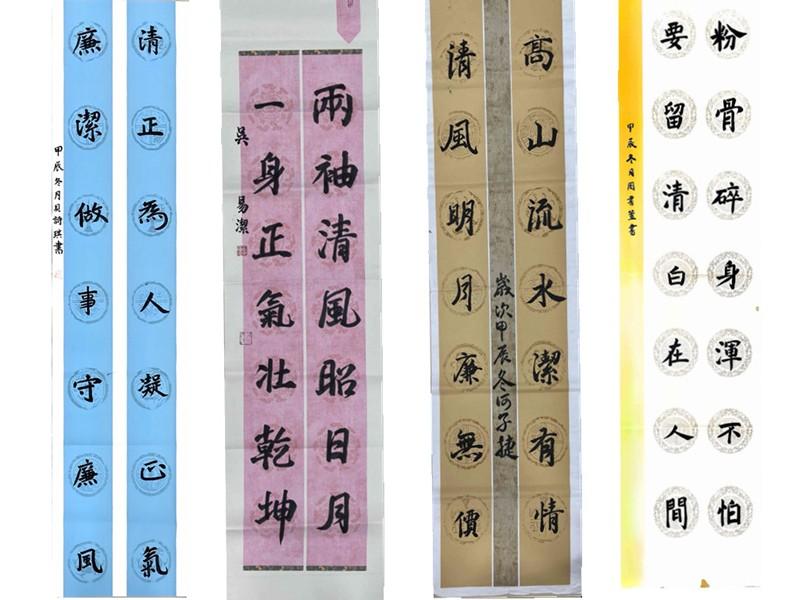 清正為人凝正氣
廉潔做事守廉風
甲辰冬月貝詩琪書
兩袖清風昭日月
一身正氣壯乾坤
吳易潔
高山流水潔有情
清風明月廉無價
歲次甲辰冬何子捷
粉骨碎身渾不怕
要留清白在人間
甲辰冬月周書萱書